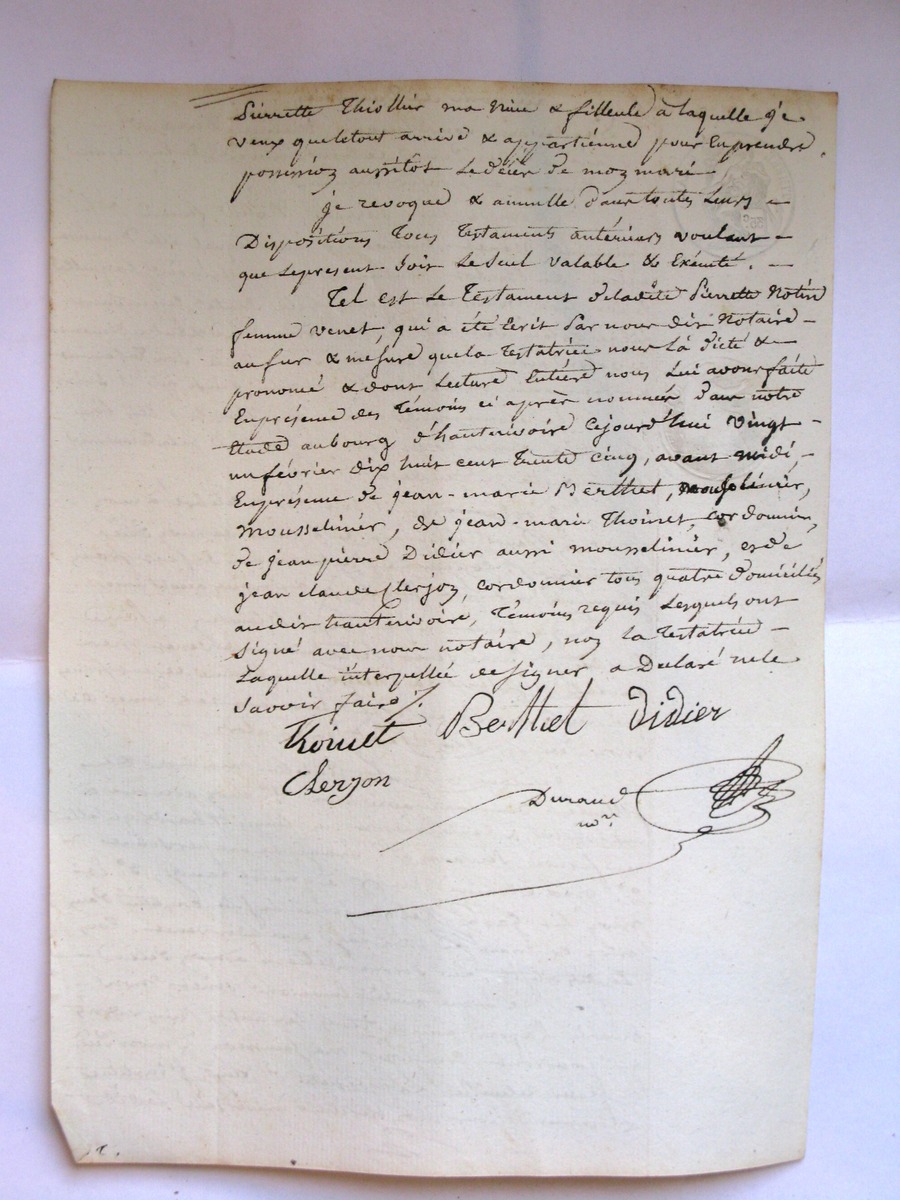 Pierrette Thiollier ma nièce & filleule à laquelle je
veux que letout arrive & appartienne pour En prendre
possession aussitôt le décès de mon mari.
je revoque & annulle dans toutes leurs
Dispositions Tous Testaments antérieurs voulant
que le present soit le seul valable & Exécuté.
Tel est le Testament de ladite Pierrette Notin
femme venet, qui a été Ecrit Par nous dit Notaire
au fur & mesure que la Testatrice nous l'a dicté &
prononcé & dont lecture Entière nous lui avons faite
En présence des Témoins ci après nommés dans notre
Etude au bourg d'hauterivoire cejourd'hui vingt
un février dix huit cent trente cinq, avant midi,
En présence de jean-marie Berthet,
Mousselinier, de jean-marie Thoinet, cordonnier,
de jean pierre Didier aussi mousselinier, & de
jean claude Clerjon, cordonnier tous quatre domiciliés
audit hauterivoire, Témoins requis Lesquels ont
signé avec nous notaire, non la Testatrice
Laquelle interpellée de signer a Déclaré ne le
savoir faire /.
Thoinet Berthet Didier
Clerjon
Durand
nore